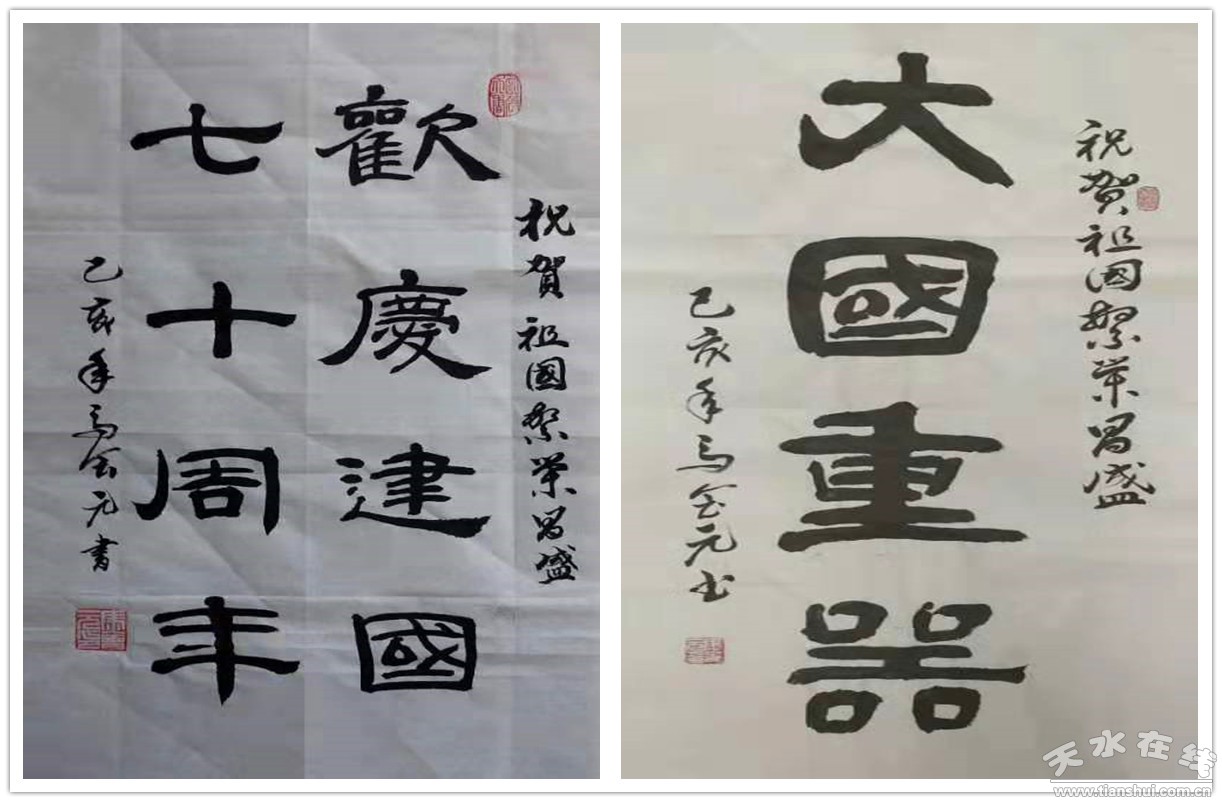 祝賀祖國繁荣昌盛
歡慶建國
七十周年
己亥年马会元書
祝贺祖国繁荣昌盛
大國重器
己亥年马会元书
天水在线
www.tianshui.com.cn